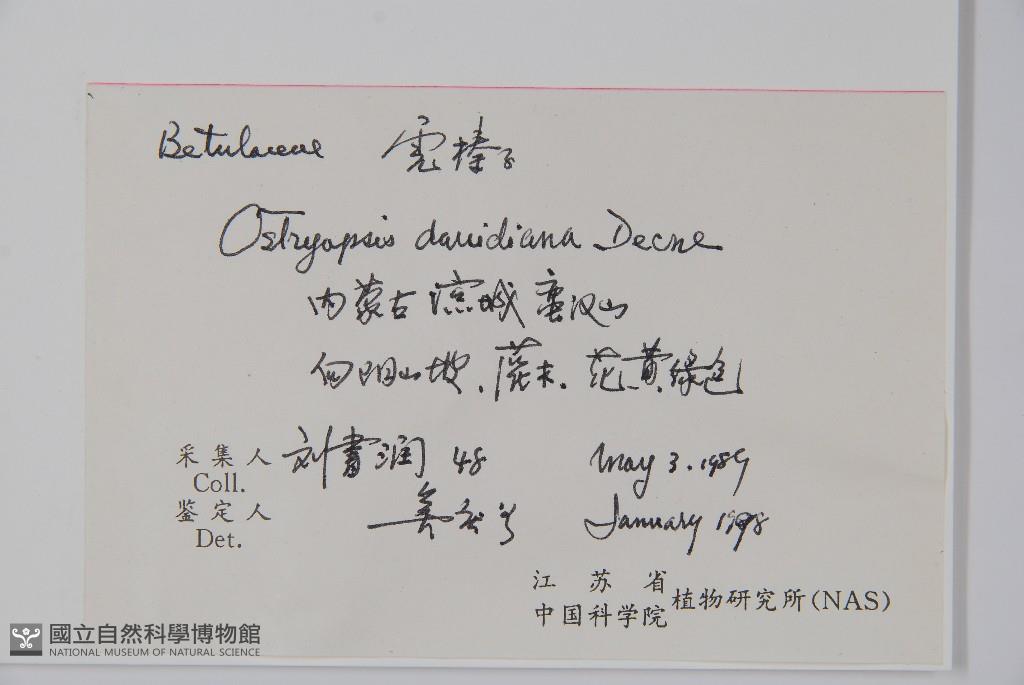 Betulaceae 虎榛子
Ostryopsis davidiana Decne
内蒙古 凉城 蛮汉山
向阳山坡. 灌木. 花黄绿色
采集人 刘書润 48 May 3. 1989
Coll.
鉴定人 January 1998
Det.
江苏省
中国科学院 植物研究所(NAS)
國立自然科學博物館
NATIONAL MUSEUM OF NATURAL SCIENCE